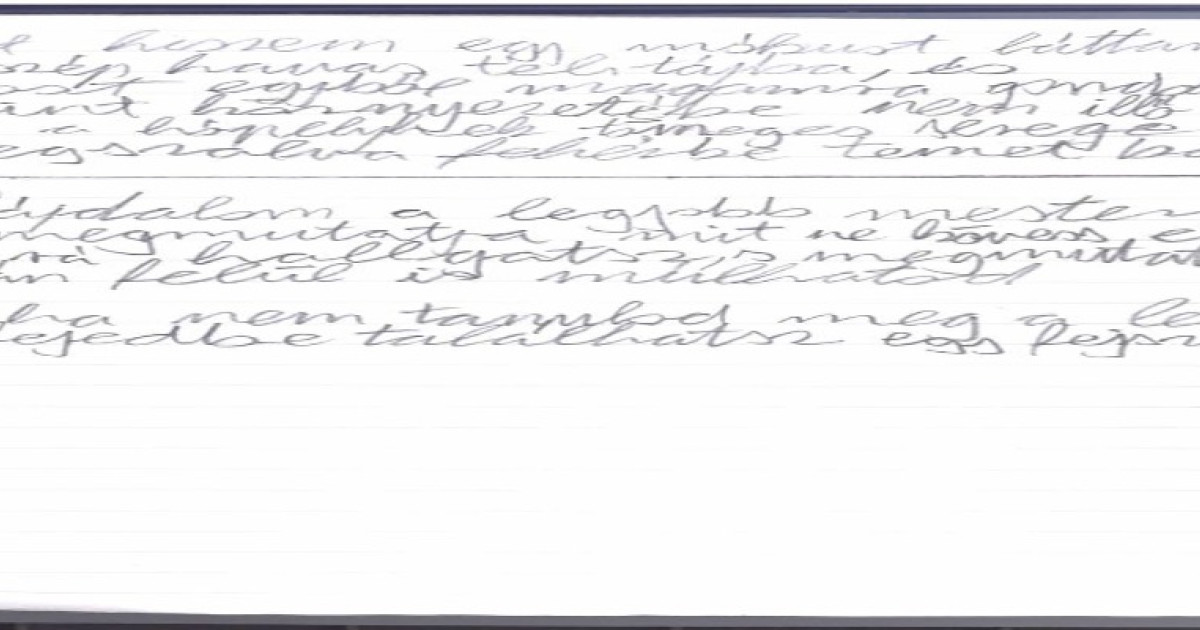 hiszem egy mókust láttam
szép havas téli tájba, és
egyből magamra gondo
környezetébe nem illő
a hópelyhek tömeges serege
fehérbe temet
a legjobb mester
megmutatja mit ne kövess e
rá hallgatsz, s megmutat
felül is múlható
ha nem tanulod meg a le
fejedbe találhatsz egy fejsz